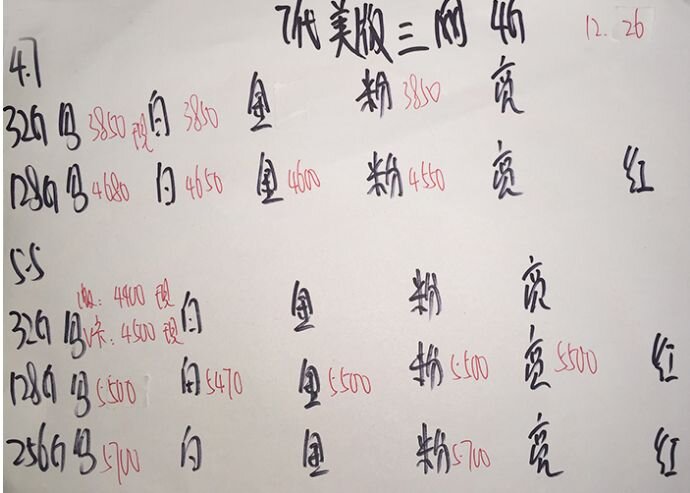 7代美版三网 4G 12.26
4.7
32G 黑 3850 现 白 3850 金 粉 3850 亮
128G 黑 4680 白 4650 金 4600 粉 4550 亮 红
5.5
: 4400 现
32G 黑 V卡: 4500 现 白 金 粉 亮
128G 黑 5500 白 5470 金 5500 粉 5500 亮 5500 红
256G 黑 5700 白 金 粉 5700 亮 红